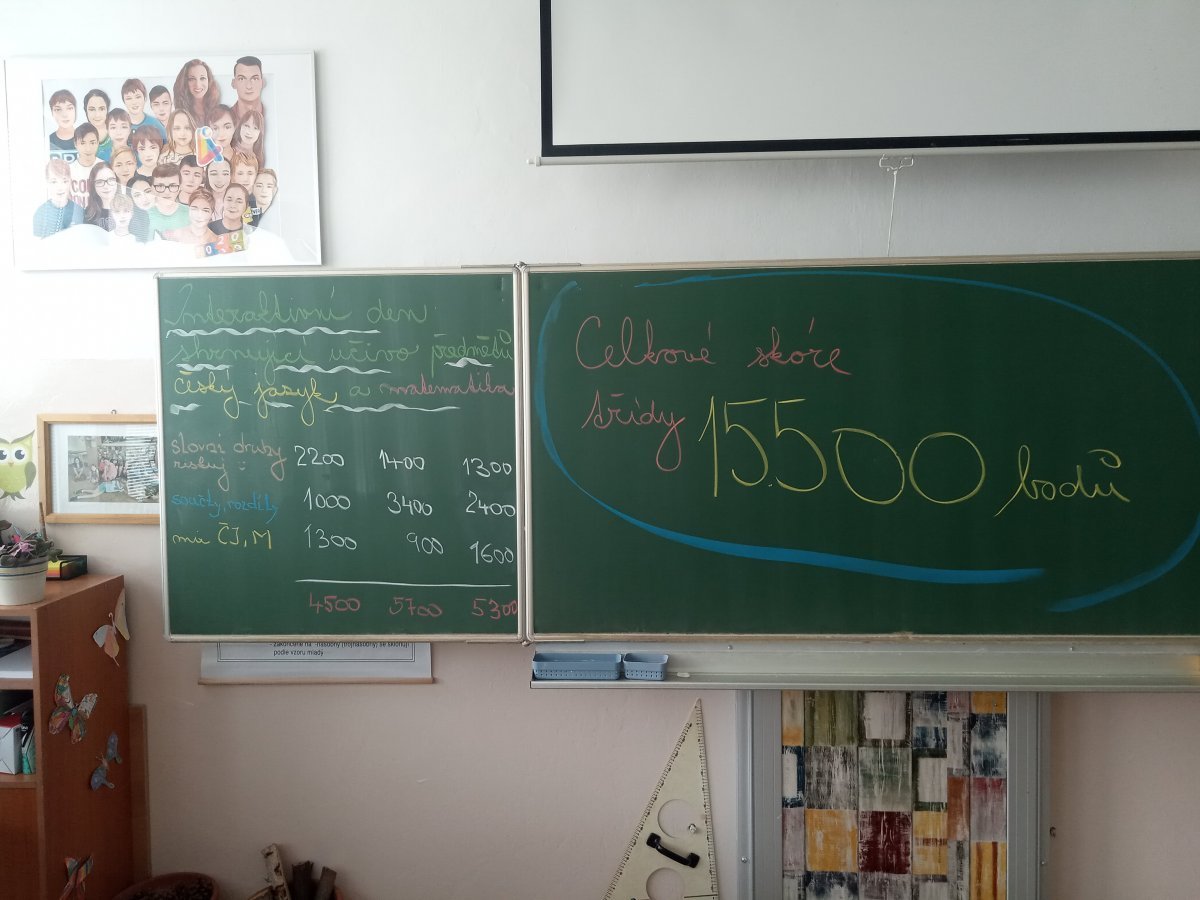 Interaktivní den
shrnující učivo předmětů
český jazyk a matematika
slovní druhy 2200 1400 1300
riskuj :
součty, rozdíly 1000 3400 2400
mix ČJ, M 1300 900 1600
4500 5700 5300
Celkové skóre
třídy 15.500 bodů
- zakončené na -násobný (trojnásobný) se skloňují
podle vzoru mladý